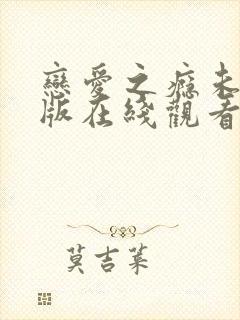 戀愛之癮未
版在綫觀看
莫吉葉